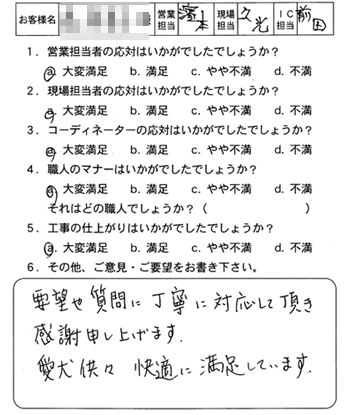 お客様名 様 営業担当 濱本 現場担当 久光 IC担当 前田
1．営業担当者の応対はいかがでしたでしょうか？
a. 大変満足 b. 満足 c. やや不満 d. 不満
2．現場担当者の応対はいかがでしたでしょうか？
a. 大変満足 b. 満足 c. やや不満 d. 不満
3．コーディネーターの応対はいかがでしたでしょうか？
a. 大変満足 b. 満足 c. やや不満 d. 不満
4．職人のマナーはいかがでしたでしょうか？
a. 大変満足 b. 満足 c. やや不満 d. 不満
それはどの職人でしょうか？（ ）
5．工事の仕上がりはいかがでしたでしょうか？
a. 大変満足 b. 満足 c. やや不満 d. 不満
6．その他、ご意見・ご要望をお書き下さい。
要望や質問に丁寧に対応して頂き
感謝申し上げます.
愛犬供々 快適に満足しています.